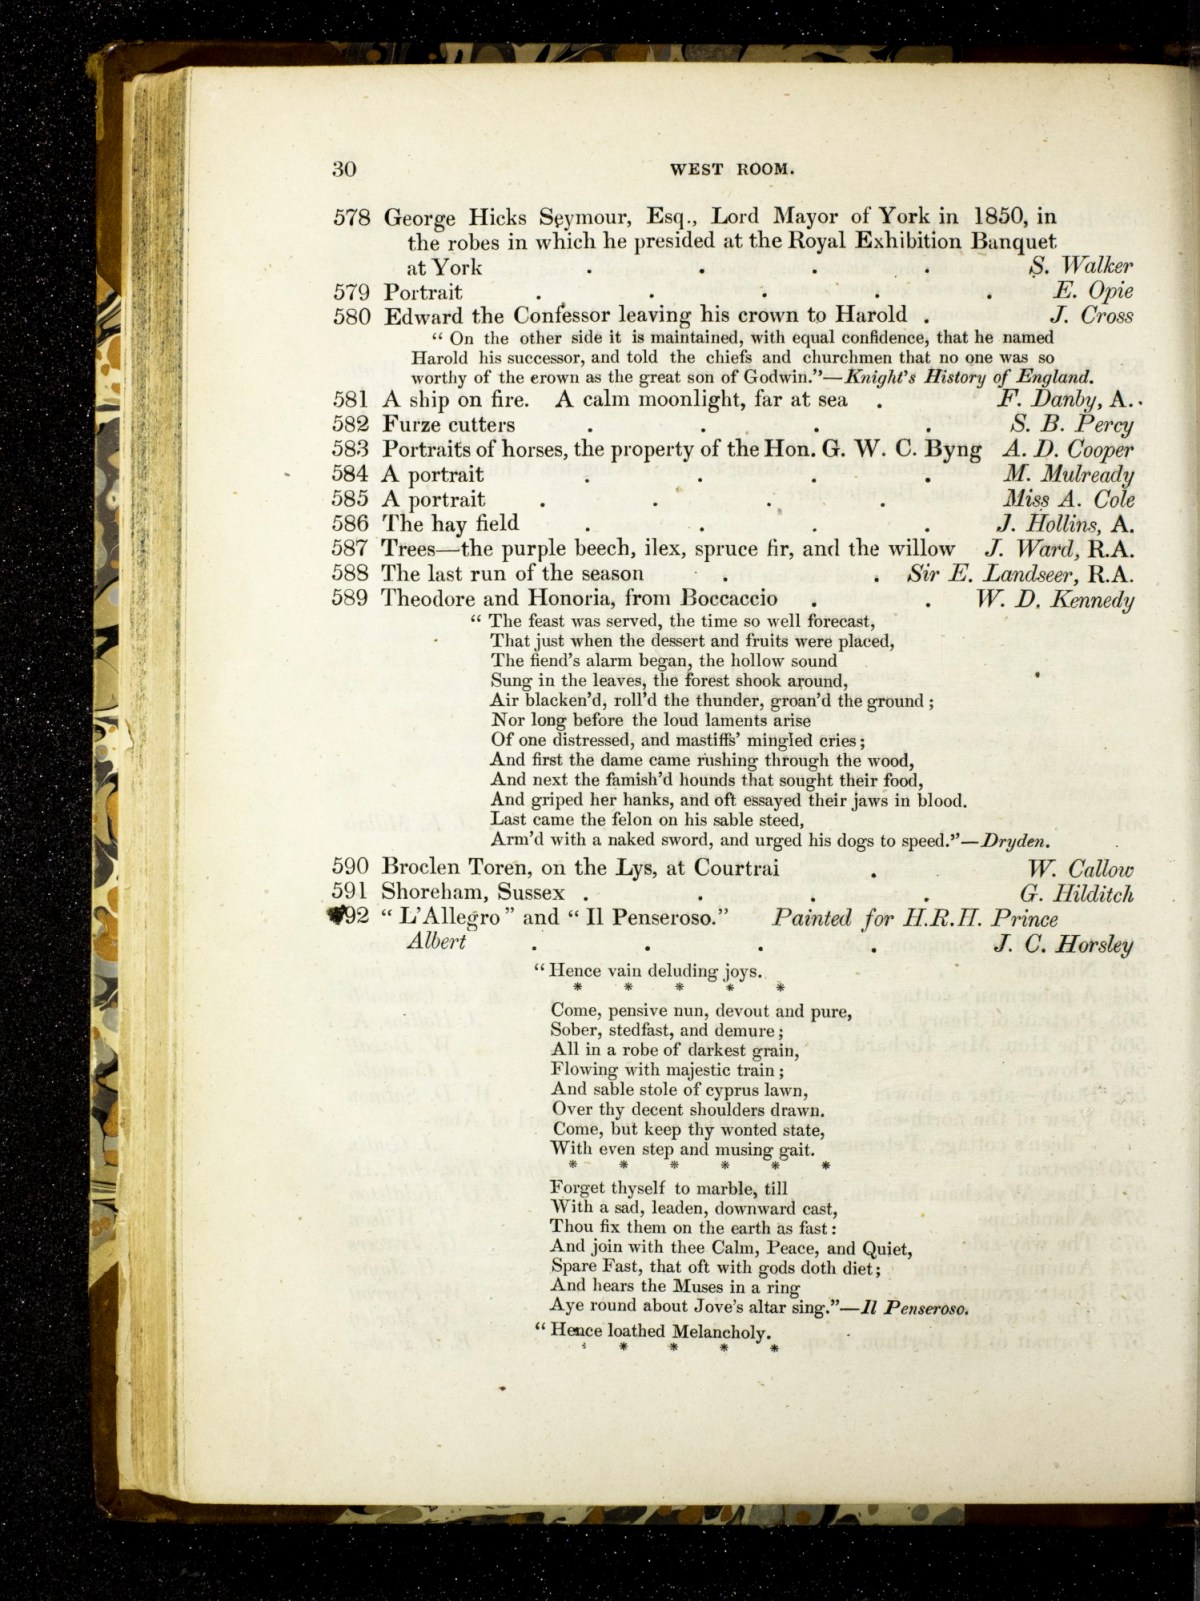 30 WEST ROOM.
578 George Hicks Seymour, Esq., Lord Mayor of York in 1850, in
the robes in which he presided at the Royal Exhibition Banquet
at York . . . . S. Walker
579 Portrait . . . . . E. Opie
580 Edward the Confessor leaving his crown to Harold . J. Cross
“ On the other side it is maintained, with equal confidence, that he named
Harold his successor, and told the chiefs and churchmen that no one was so
worthy of the crown as the great son of Godwin.”—Knight's History of England.
581 A ship on fire. A calm moonlight, far at sea . F. Danby, A.
582 Furze cutters . . . . S. B. Percy
583 Portraits of horses, the property of the Hon. G. W. C. Byng A. D. Cooper
584 A portrait . . . . M. Mulready
585 A portrait . . . . Miss A. Cole
586 The hay field . . . . J. Hollins, A.
587 Trees—the purple beech, ilex, spruce fir, and the willow J. Ward, R.A.
588 The last run of the season . . Sir E. Landseer, R.A.
589 Theodore and Honoria, from Boccaccio . . W. D. Kennedy
“ The feast was served, the time so well forecast,
That just when the dessert and fruits were placed,
The fiend's alarm began, the hollow sound
Sung in the leaves, the forest shook around,
Air blacken'd, roll'd the thunder, groan'd the ground ;
Nor long before the loud laments arise
Of one distressed, and mastiffs' mingled cries ;
And first the dame came rushing through the wood,
And next the famish'd hounds that sought their food,
And griped her hanks, and oft essayed their jaws in blood.
Last came the felon on his sable steed,
Arm'd with a naked sword, and urged his dogs to speed.”—Dryden.
590 Broclen Toren, on the Lys, at Courtrai . W. Callow
591 Shoreham, Sussex . . . . G. Hilditch
92 “ L'Allegro ” and “ Il Penseroso.” Painted for H.R.H. Prince
Albert . . . . J. C. Horsley
“ Hence vain deluding joys.
* * * * *
Come, pensive nun, devout and pure,
Sober, stedfast, and demure ;
All in a robe of darkest grain,
Flowing with majestic train ;
And sable stole of cyprus lawn,
Over thy decent shoulders drawn.
Come, but keep thy wonted state,
With even step and musing gait.
* * * * * *
Forget thyself to marble, till
With a sad, leaden, downward cast,
Thou fix them on the earth as fast :
And join with thee Calm, Peace, and Quiet,
Spare Fast, that oft with gods doth diet ;
And hears the Muses in a ring
Aye round about Jove's altar sing.”—Il Penseroso.
“ Hence loathed Melancholy.
* * * *